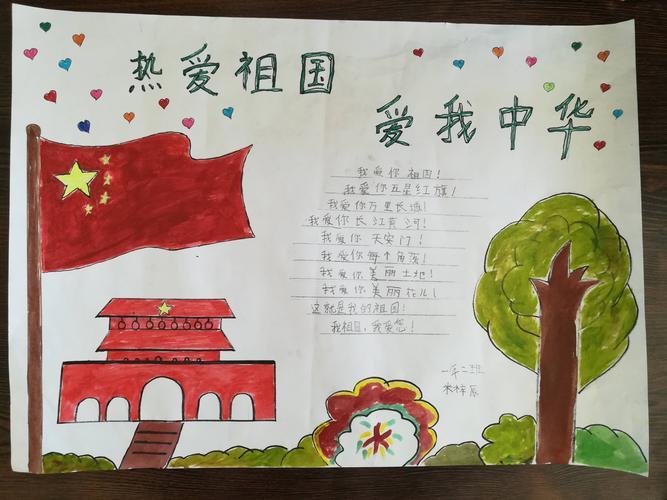 热爱祖国
爱我中华
我爱你祖国！
我爱你五星红旗！
我爱你万里长城！
我爱你长江黄河！
我爱你天安门！
我爱你每个角落！
我爱你美丽土地！
我爱你美丽花儿！
这就是我的祖国！
我祖国，我爱您！
一年二班